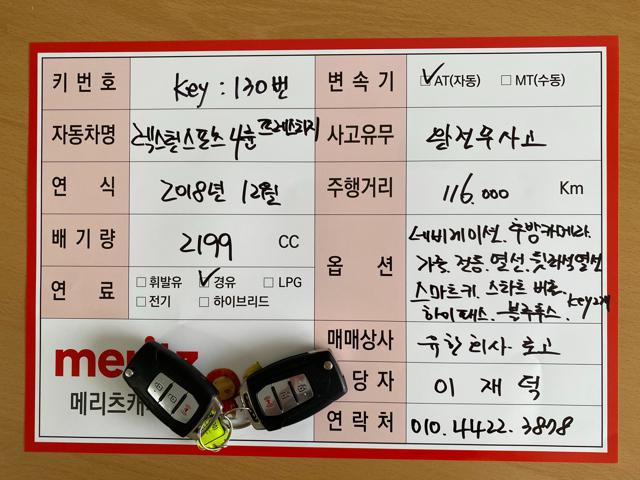 키 번 호 Key : 130번
변 속 기 ☑AT(자동) □MT(수동)
자동차명 렉스턴스포츠 4륜 프레스티지
사고유무 완전무사고
연 식 2018년 12월
주행거리 116.000 Km
배 기 량 2199 CC
옵 션 네비게이션. 후방카메라.
가죽. 전동. 열선. 뒷좌석열선
스마트키. 스타트 버튼.
하이패스. 블루투스. Key 2개
연 료 □휘발유 ☑경유 □LPG
□전기 □하이브리드
매매상사 유한회사 로고
당 자 이 재 덕
연 락 처 010.4422.3878
meritz
메리츠캐